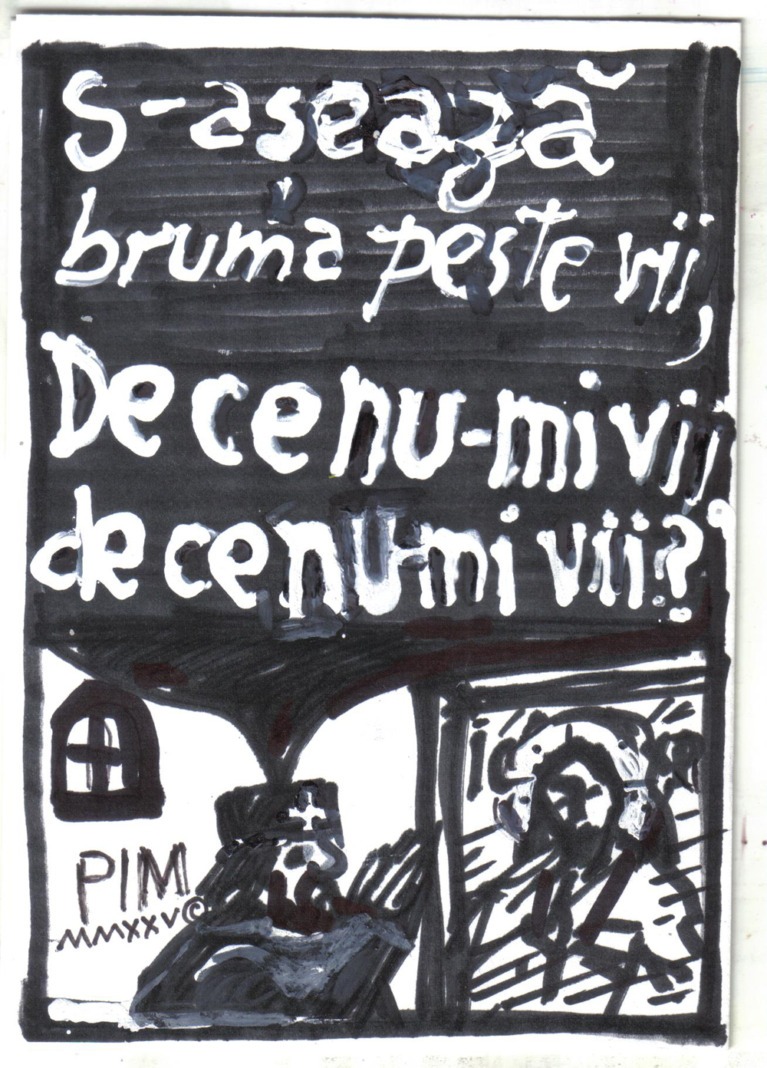 S-asează
bruma peste vii,
De ce nu-mi vij
de ce nu-mi vii?
IC
PIM
MMXXV©